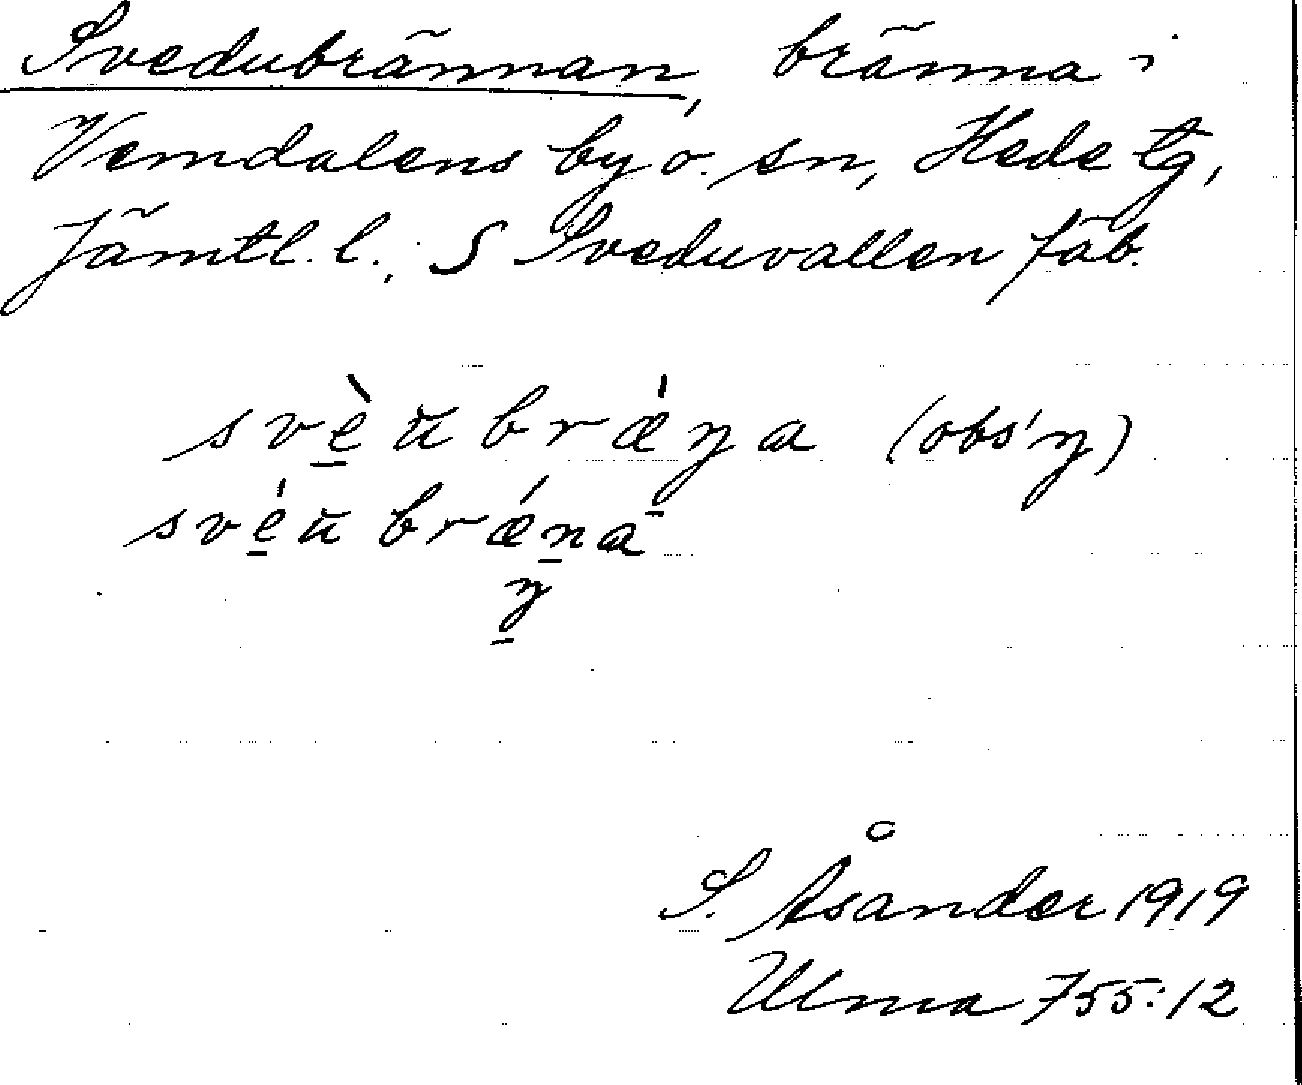 Svedubrännan, bränna i
Vemdalens by o. sn, Hede tg,
Jämtl. l., S Sveduvallen fäb.
svè̱ŭbræ̀ŋa (obs! ŋ)
své̱ŭbrǽṉa
ŋ̱
S. Åsander 1919
Ulma 755:12